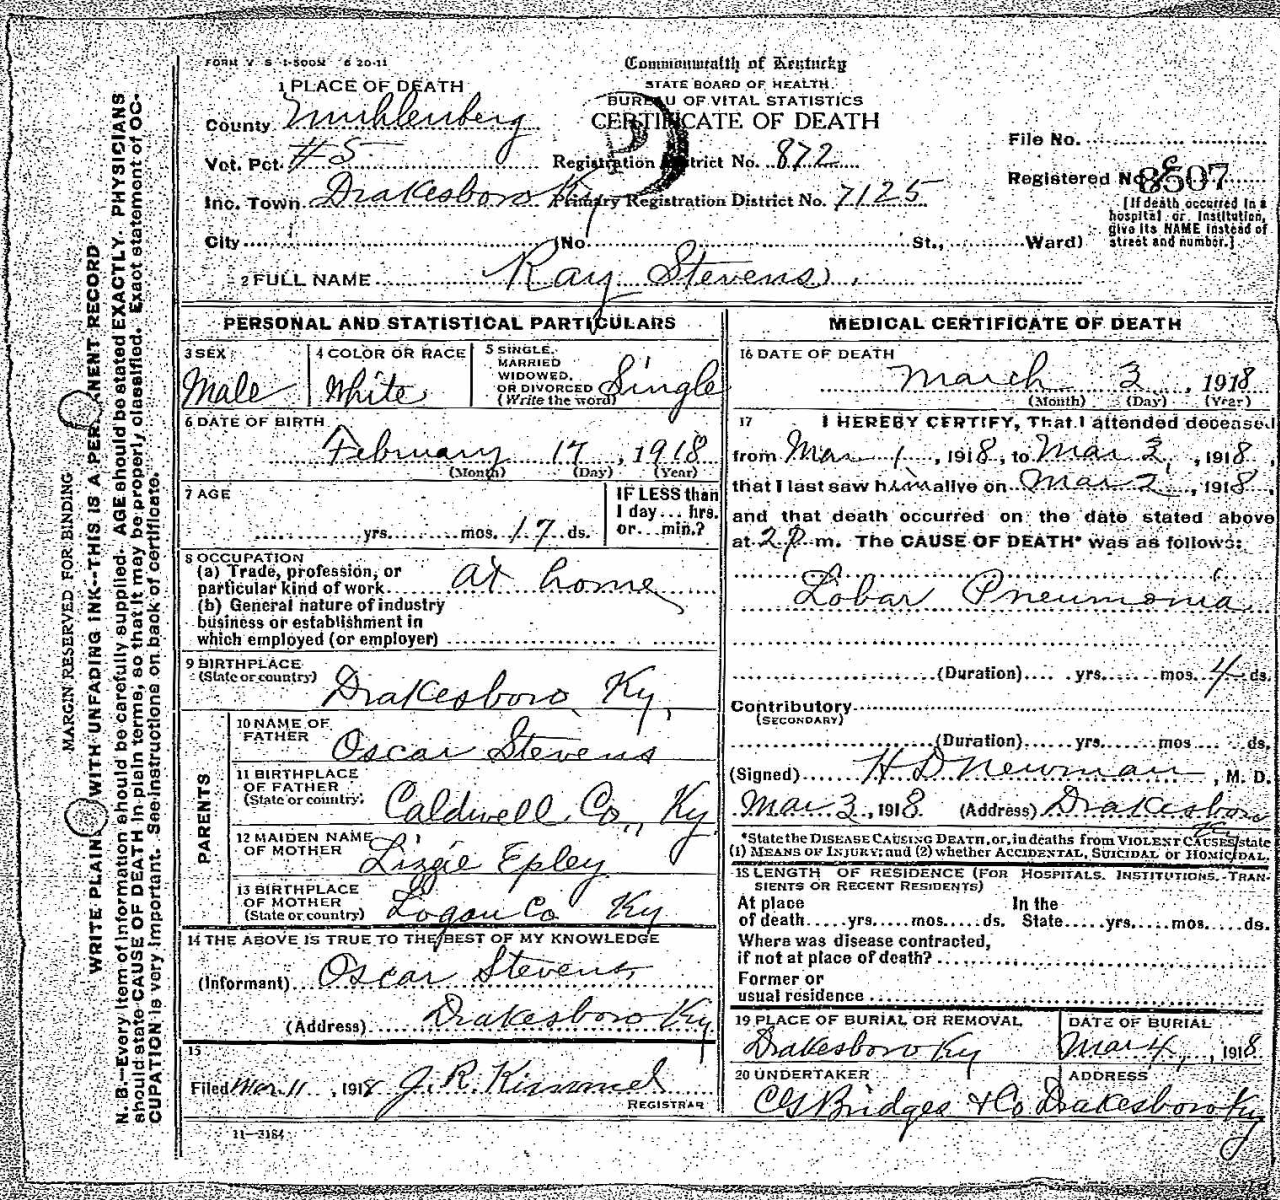 FORM V S 1-500M 6 20-11
Commonwealth of Kentucky
STATE BOARD OF HEALTH
BUREAU OF VITAL STATISTICS
CERTIFICATE OF DEATH
1 PLACE OF DEATH
County Muhlenberg
Vot. Pct. #5 Registration District No. 872
Inc. Town Drakesboro Ky Primary Registration District No. 7125
File No.
Registered No. 8507
[If death occurred in a hospital or institution, give its NAME instead of street and number.]
City (No. St., Ward)
2 FULL NAME Ray Stevens
PERSONAL AND STATISTICAL PARTICULARS
3 SEX Male
4 COLOR OR RACE White
5 SINGLE, MARRIED WIDOWED, OR DIVORCED (Write the word) Single
6 DATE OF BIRTH
February 17, 1918
(Month) (Day) (Year)
7 AGE
yrs. mos. 17 ds.
IF LESS than 1 day... hrs. or... min.?
8 OCCUPATION
(a) Trade, profession, or particular kind of work at home
(b) General nature of industry business or establishment in which employed (or employer)
9 BIRTHPLACE
(State or country) Drakesboro, Ky,
PARENTS
10 NAME OF FATHER Oscar Stevens
11 BIRTHPLACE OF FATHER (State or country) Caldwell Co., Ky
12 MAIDEN NAME OF MOTHER Lizzie Epley
13 BIRTHPLACE OF MOTHER (State or country) Logan Co Ky
14 THE ABOVE IS TRUE TO THE BEST OF MY KNOWLEDGE
(Informant) Oscar Stevens
(Address) Drakesboro Ky
15
Filed Mar. 11, 1918 J. R. Kimmel
REGISTRAR
11-3184
MEDICAL CERTIFICATE OF DEATH
16 DATE OF DEATH
March 3, 1918
(Month) (Day) (Year)
17 I HEREBY CERTIFY, That I attended deceased
from Mar 1, 1918, to Mar 2, 1918,
that I last saw him alive on Mar 2, 1918,
and that death occurred on the date stated above
at 2 P. m. The CAUSE OF DEATH* was as follows:
Lobar Pneumonia
(Duration) yrs. mos. 4 ds.
Contributory
(SECONDARY)
(Duration) yrs. mos ds.
(Signed) H D Newman, M. D.
Mar 3, 1918 (Address) Drakesboro
Ky
*State the DISEASE CAUSING DEATH, or, in deaths from VIOLENT CAUSES, state
(1) MEANS OF INJURY; and (2) whether ACCIDENTAL, SUICIDAL or HOMICIDAL.
18 LENGTH OF RESIDENCE (FOR HOSPITALS, INSTITUTIONS, TRANSIENTS OR RECENT RESIDENTS)
At place of death yrs. mos. ds. In the State yrs. mos. ds.
Where was disease contracted, if not at place of death?
Former or usual residence
19 PLACE OF BURIAL OR REMOVAL Drakesboro Ky
DATE OF BURIAL Mar 4, 1918
20 UNDERTAKER ADDRESS
CG Bridges & Co Drakesboro Ky
MARGIN RESERVED FOR BINDING
WRITE PLAINLY WITH UNFADING INK--THIS IS A PERMANENT RECORD
N. B.—Every item of information should be carefully supplied. AGE should be stated EXACTLY. PHYSICIANS
should state CAUSE OF DEATH in plain terms, so that it may be properly classified. Exact statement of OC-
CUPATION is very important. See instructions on back of certificate.